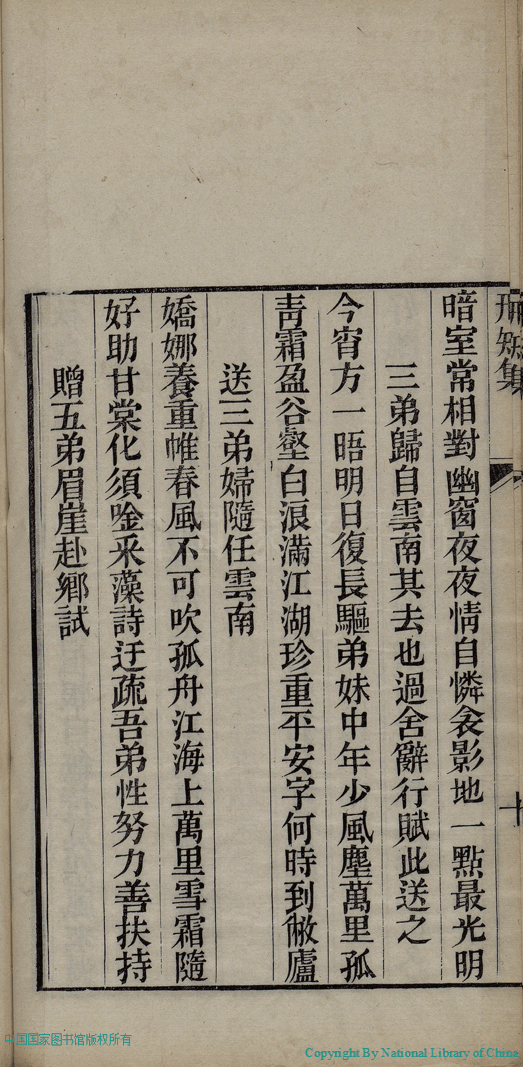 暗室常相對幽窗夜夜情自憐衾影地一點最光明
三弟歸自雲南其去也過舍辭行賦此送之
今宵方一晤明日復長驅弟妹中年少風塵萬里孤
青霜盈谷壑白浪滿江湖珍重平安字何時到敝廬
送三弟婦隨任雲南
嬌娜養重帷春風不可吹孤舟江海上萬里雪霜隨
好助甘棠化須唫采藻詩迂疏吾弟性努力善扶持
贈五弟眉崖赴鄉試
中国国家图书馆版权所有
Copyright By National Library of China